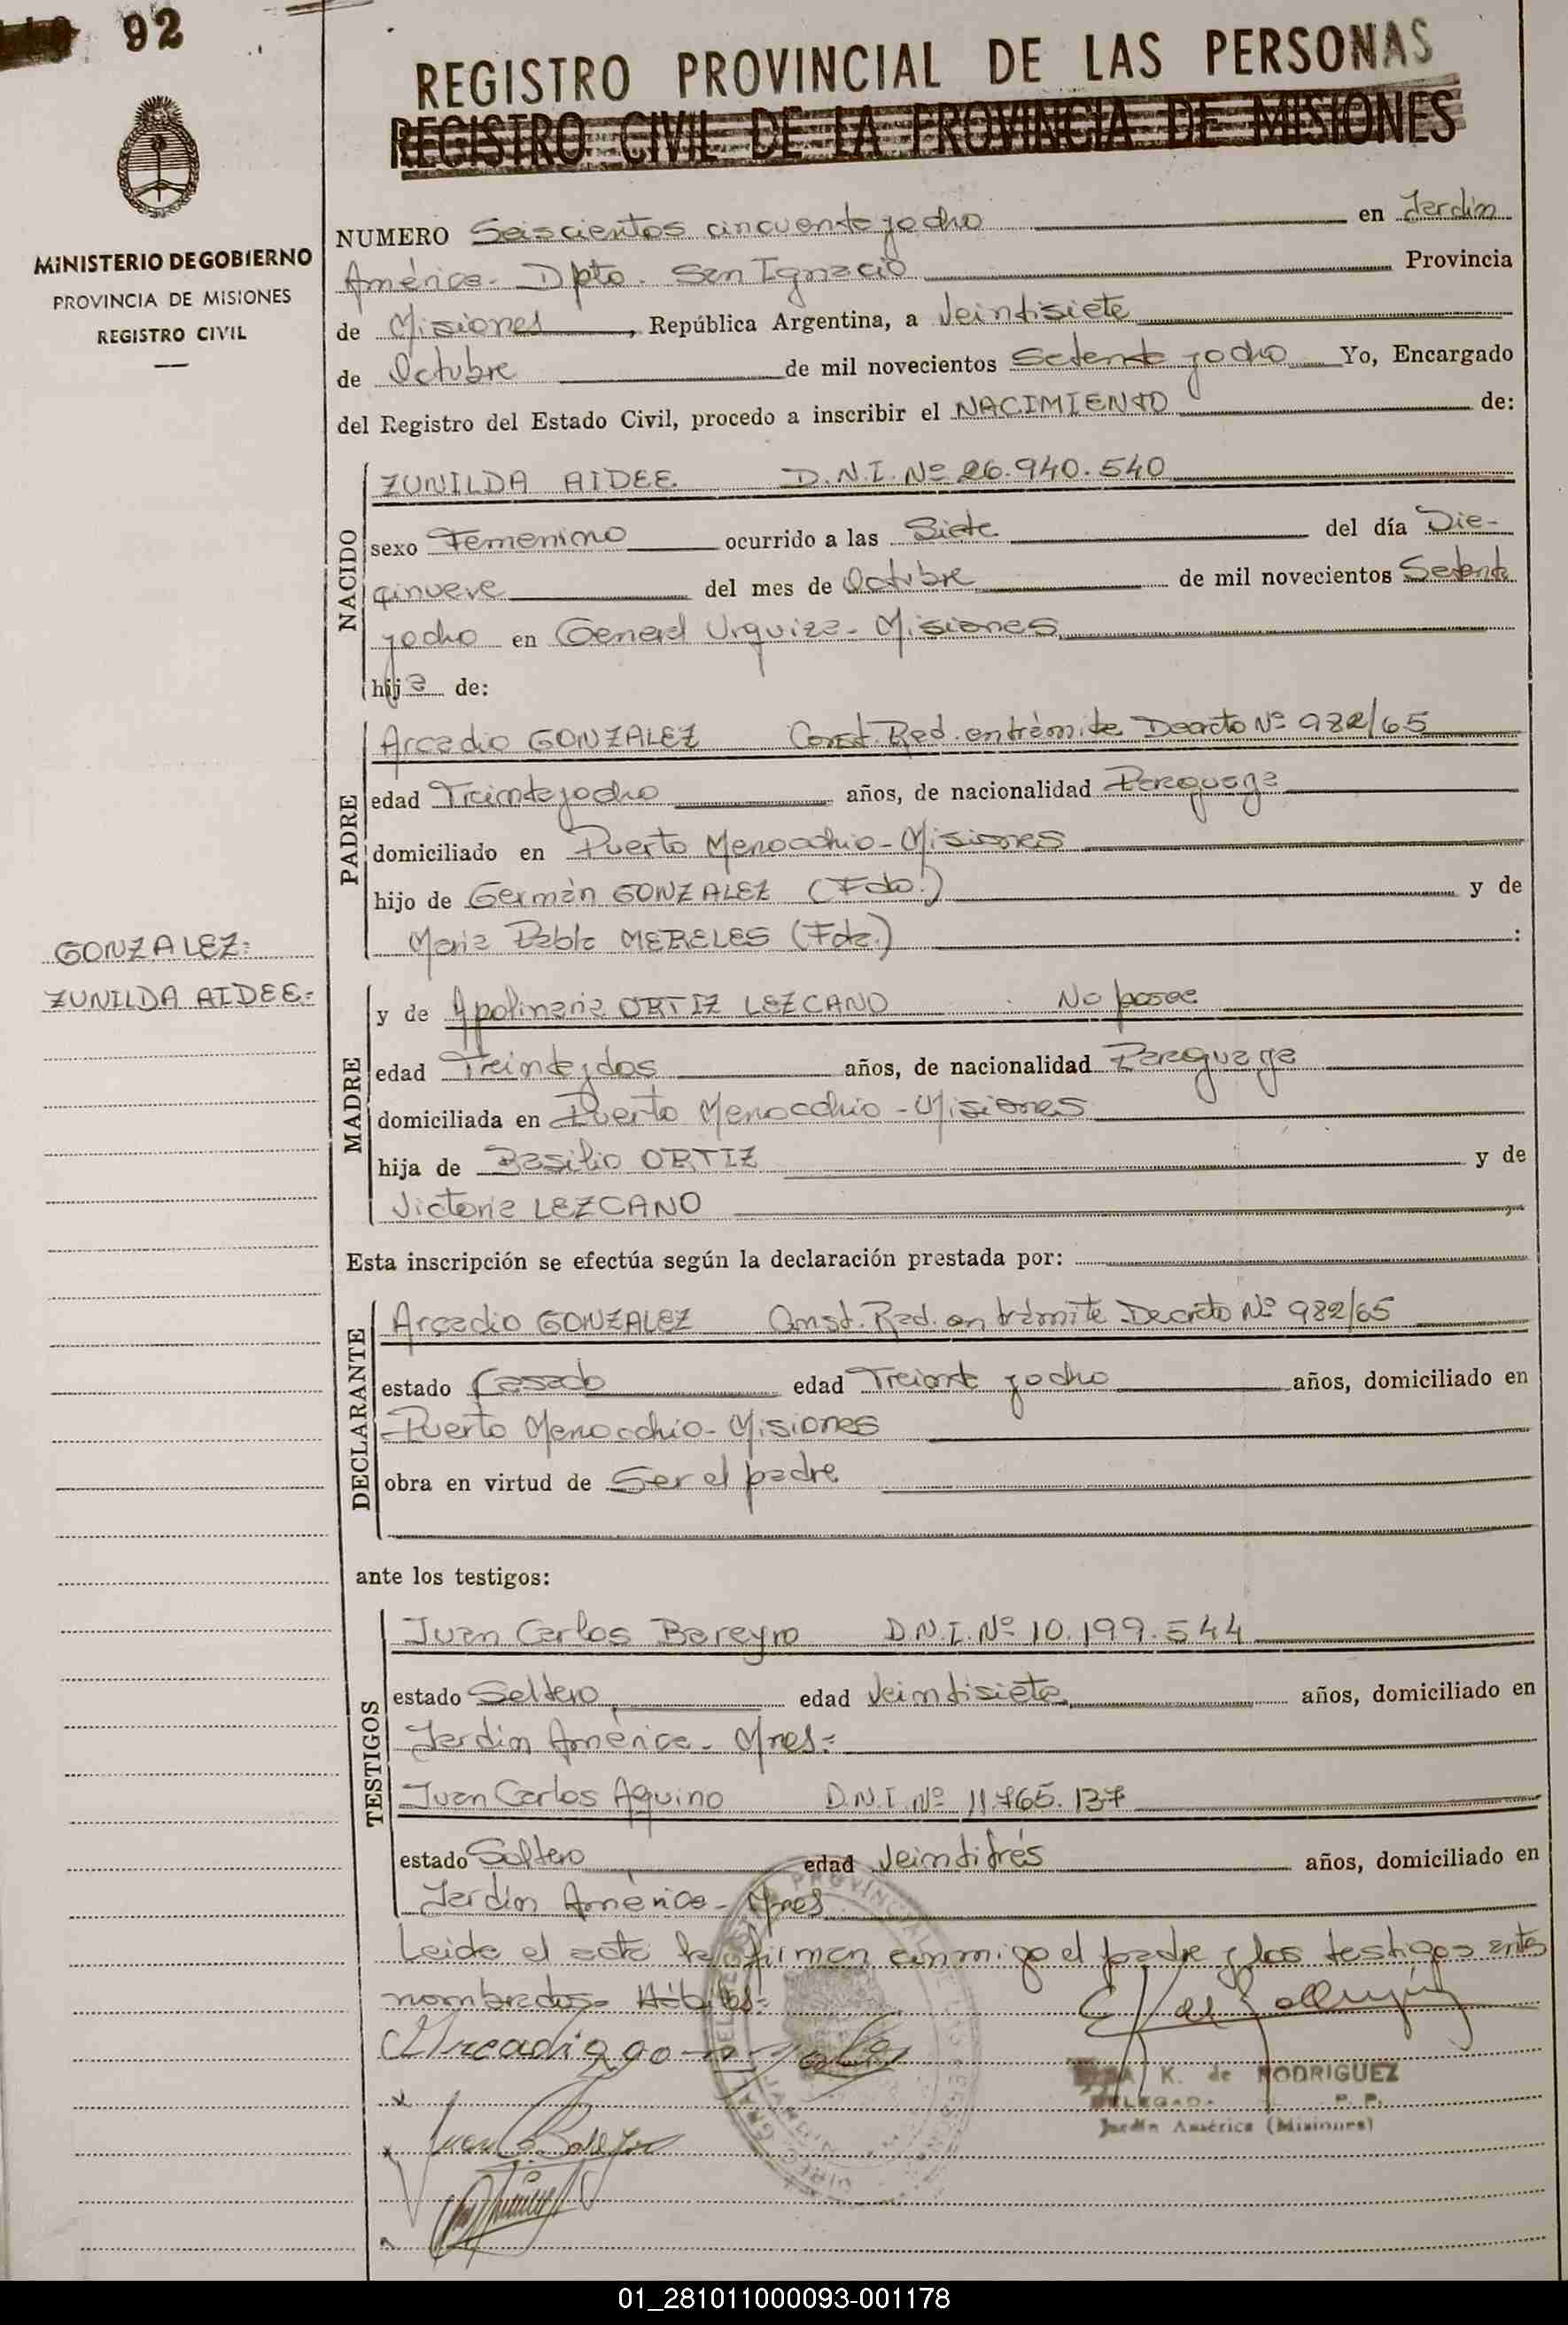 92
REGISTRO PROVINCIAL DE LAS PERSONAS
REGISTRO CIVIL DE LA PROVINCIA DE MISIONES
MINISTERIO DE GOBIERNO
PROVINCIA DE MISIONES
REGISTRO CIVIL
NUMERO Seiscientos cincuenta y ocho en Jardín
América - Dpto. San Ignacio Provincia
de Misiones, República Argentina, a Veintisiete
de Octubre de mil novecientos Setenta y ocho Yo, Encargado
del Registro del Estado Civil, procedo a inscribir el NACIMIENTO de:
NACIDO
ZUNILDA AIDEE D.N.I. Nº 26.940.540
sexo Femenino ocurrido a las Siete del día Die-
cinueve del mes de Octubre de mil novecientos Setenta
y ocho en General Urquiza - Misiones
hija de:
PADRE
Arcadio GONZALEZ Const. Rad. en trámite Decreto Nº 982/65
edad Treinta y ocho años, de nacionalidad Paraguaya
domiciliado en Puerto Menocchio - Misiones
hijo de Germán GONZALEZ (Fdo.) y de
Maria Pabla MERELES (Fda.) :
GONZALEZ=
ZUNILDA AIDEE=
MADRE
y de Apolinaria ORTIZ LEZCANO No posee
edad Treinta y dos años, de nacionalidad Paraguaya
domiciliada en Puerto Menocchio - Misiones
hija de Basilio ORTIZ y de
Victoria LEZCANO
Esta inscripción se efectúa según la declaración prestada por:
DECLARANTE
Arcadio GONZALEZ Const. Rad. en trámite Decreto Nº 982/65
estado Casado edad Treinta y ocho años, domiciliado en
Puerto Menocchio - Misiones
obra en virtud de Ser el padre
ante los testigos:
TESTIGOS
Juan Carlos Bareyro D.N.I. Nº 10.199.544
estado Soltero edad Veintisiete años, domiciliado en
Jardín América - Mnes=
Juan Carlos Aquino D.N.I. Nº 11.765.137
estado Soltero edad Veintitrés años, domiciliado en
Jardín América - Mnes
Leida el acta la firman conmigo el padre y los testigos antes
nombrados - Hábiles=
K. de RODRIGUEZ
Jardín América (Misiones)
01_281011000093-001178